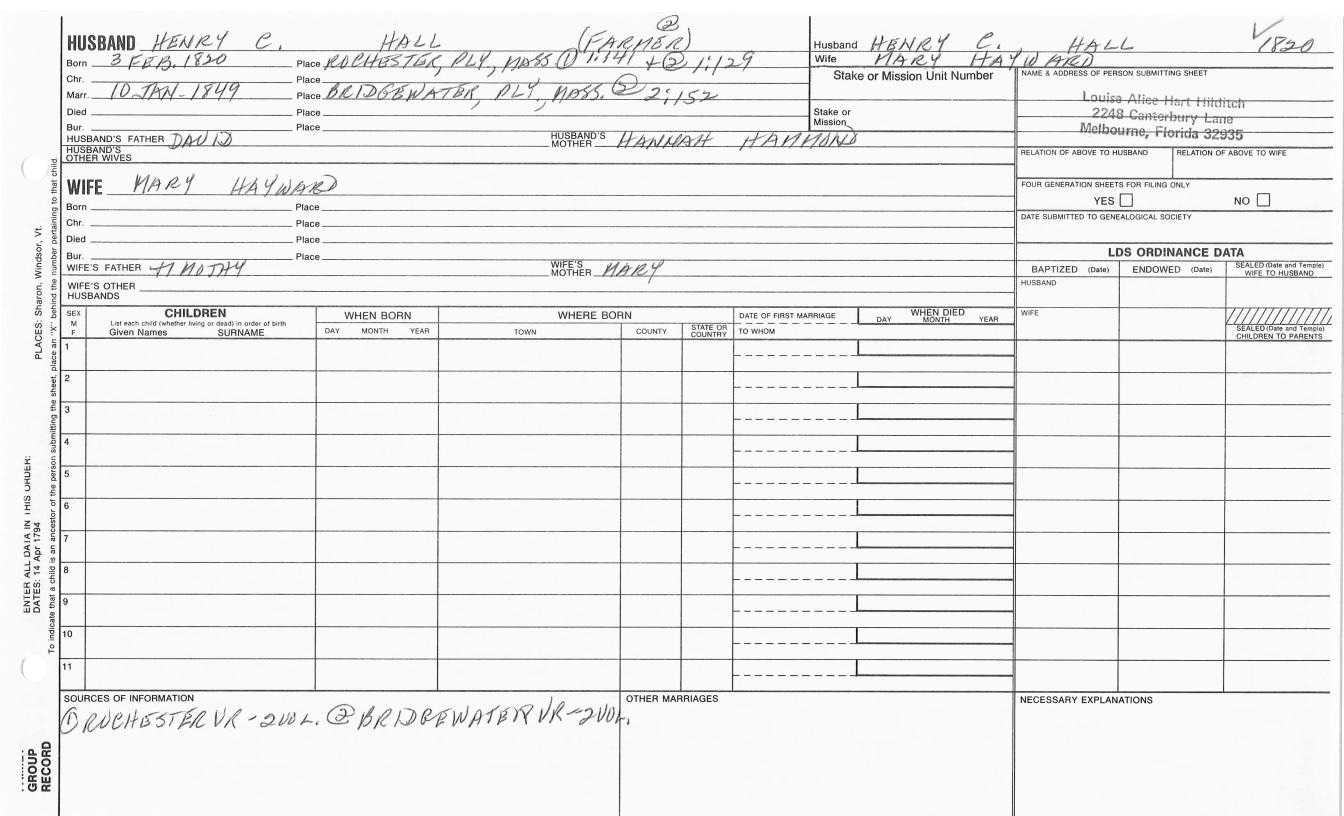 HUSBAND HENRY C. HALL (FARMER) ②
Born 3 FEB. 1820 Place ROCHESTER, PLY, MASS ① 1:141 + ② 1:129
Chr. Place
Marr. 10 JAN-1849 Place BRIDGEWATER, PLY, MASS. ② 2:152
Died Place
Bur. Place
HUSBAND'S FATHER DAVID HUSBAND'S MOTHER HANNAH HAMMOND
HUSBAND'S OTHER WIVES
Husband HENRY C. HALL ✓ 1820
Wife MARY HAYWARD
Stake or Mission Unit Number
Stake or Mission
NAME & ADDRESS OF PERSON SUBMITTING SHEET
Louise Alice Hart Hilditch
2248 Canterbury Lane
Melbourne, Florida 32935
RELATION OF ABOVE TO HUSBAND RELATION OF ABOVE TO WIFE
FOUR GENERATION SHEETS FOR FILING ONLY
YES NO
DATE SUBMITTED TO GENEALOGICAL SOCIETY
WIFE MARY HAYWARD
Born Place
Chr. Place
Died Place
Bur. Place
WIFE'S FATHER TIMOTHY WIFE'S MOTHER MARY
WIFE'S OTHER HUSBANDS
LDS ORDINANCE DATA
BAPTIZED (Date) ENDOWED (Date) SEALED (Date and Temple) WIFE TO HUSBAND
HUSBAND
WIFE
SEALED (Date and Temple) CHILDREN TO PARENTS
SEX M F
CHILDREN
List each child (whether living or dead) in order of birth
Given Names SURNAME
WHEN BORN
DAY MONTH YEAR
WHERE BORN
TOWN COUNTY STATE OR COUNTRY
DATE OF FIRST MARRIAGE
TO WHOM
WHEN DIED
DAY MONTH YEAR
1
2
3
4
5
6
7
8
9
10
11
SOURCES OF INFORMATION
① ROCHESTER VR - 2VOL. ② BRIDGEWATER VR - 2VOL.
OTHER MARRIAGES
NECESSARY EXPLANATIONS
PLACES: Sharon, Windsor, Vt.
To indicate that a child is an ancestor of the person submitting the sheet, place an "X" behind the number pertaining to that child.
ENTER ALL DATA IN THIS ORDER:
DATES: 14 Apr 1794
GROUP
RECORD